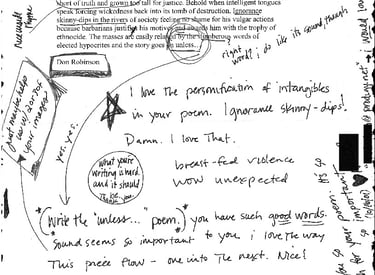 short of truth and grown too tall for justice. Behold when intelligent tongues
speak forcing wickedness back into its tomb of destruction. Ignorance
skinny-dips in the rivers of society feeling no shame for his vulgar actions
because barbarians justified his motives and awards him with the trophy of
ethnocide. The masses are easily relaxed by the slumberous words of
elected hypocrites and the story goes on unless...
right
word? i do like its sound though
Don Robinson
Just maybe help
your images
yes. yes.
I love the personification of intangibles
in your poem. Ignorance skinny-dips!
Damn. I love That.
what you're
writing is hard.
and it should
be.
Thank you.
breast-fed violence
wow unexpected
(Write the "unless..." poem.) you have such good words.
sound seems so important to you i love the way
This piece flow - one into the next. Nice!
it's so
important
for your poem.